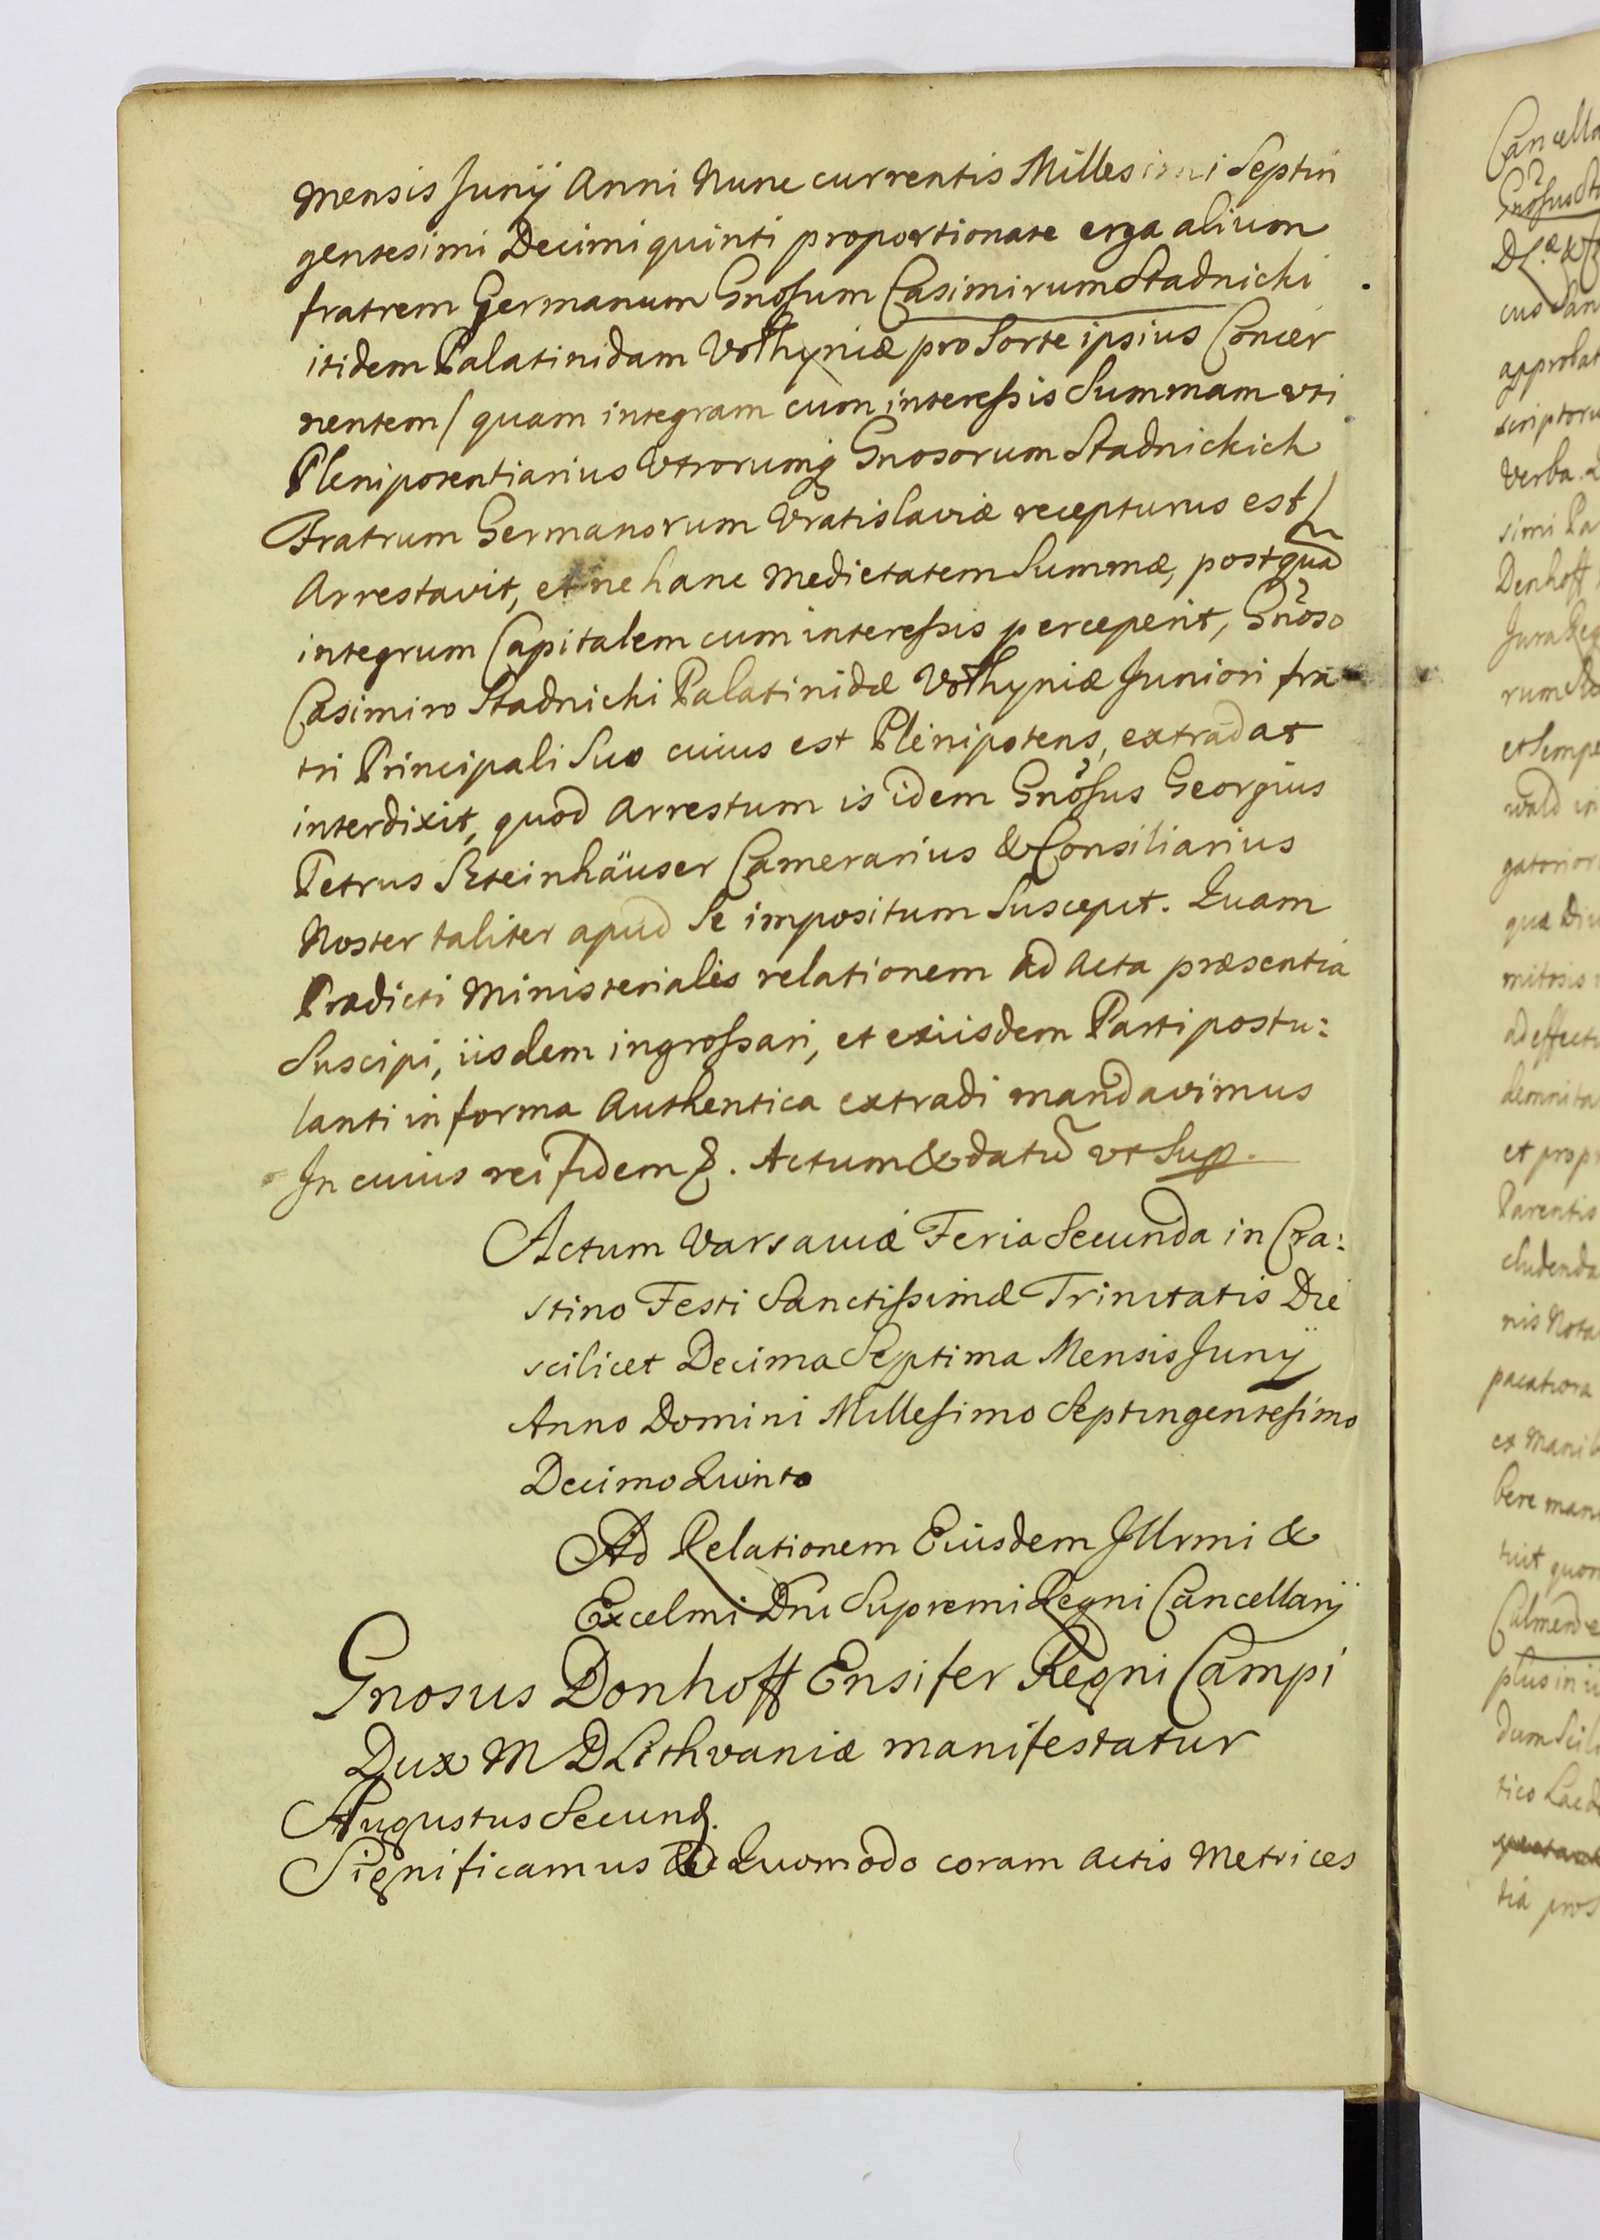 Mensis Junij Anni Nunc currentis Millesimi Septin
gentesimi Decimi quinti proportionate erga alium
fratrem Germanum Gnosum Casimirum Stadnicki
itidem Palatinidam Volhyniæ pro Sorte ipsius Concer
nentem / quam integram cum interessis Summam uti
Plenipotentiarius Utrorumq Gnosorum Stadnickich
Fratrum Germanorum Vratislaviæ recepturus est /
Arrestavit, et ne hanc Medietatem Summæ, postquã
integrum Capitalem cum interessis perceperit, Gnõso
Casimiro Stadnicki Palatinidæ Volhyniæ Juniori fra
tri Principali Suo cuius est Plenipotens, extradat
interdixit, quod Arrestum is idem Gnõsus Georgius
Petrus Steinhäuser Camerarius & Consiliarius
Noster taliter apud Se impositum Suscepit. Quam
Prædicti Ministerialis relationem ad Acta præsentia
Suscipi, iisdem ingrossari, et exiisdem Parti postu:
lanti in forma Authentica extradi mandavimus
In cuius rei fidem &. Actum & datũ ut Sup.
Actum Varsaviæ Feria Secunda in Cra:
stino Festi Sanctissimæ Trinitatis Die
scilicet Decima Septima Mensis Junij
Anno Domini Millesimo Septingentesimo
Decimo Quinto
Ad Relationem Eiusdem Jllrmi &
Excelmi Dni Supremi Regni Cancellarij
Gnosus Donhoff Ensifer Regni Campi
Dux M D Lithvaniæ manifestatur
Augustus Secund.
Significamus & Quomodo coram Actis Metrices
Cancella
approbat
scriptoru
Verba
simi Pa
Denhoff
Jura Reg
et Sempe
wald in
mitosis
ad effectu
et propr
Parentis
cludenda
nis Nota
pacatiora
ex Manib
bere man
tuit quon
plus in
dum Scili
tia pros